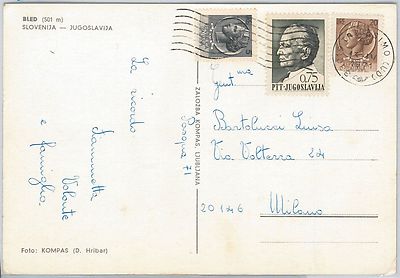 BLED (501 m)
SLOVENIJA — JUGOSLAVIJA
La ricordo
Fiammetta
Volonté
e famiglia
Pasqua 71
Foto: KOMPAS (D. Hribar)
ZALOŽBA KOMPAS, LJUBLJANA
5
0,75
PTT-JUGOSLAVIJA
Gent.ma
Bartolucci Luisa
Via Volterra 24
20146 Milano